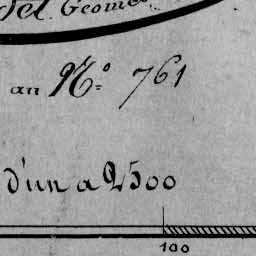 del. Géomè
an N.º 761
d'un a 2500
100